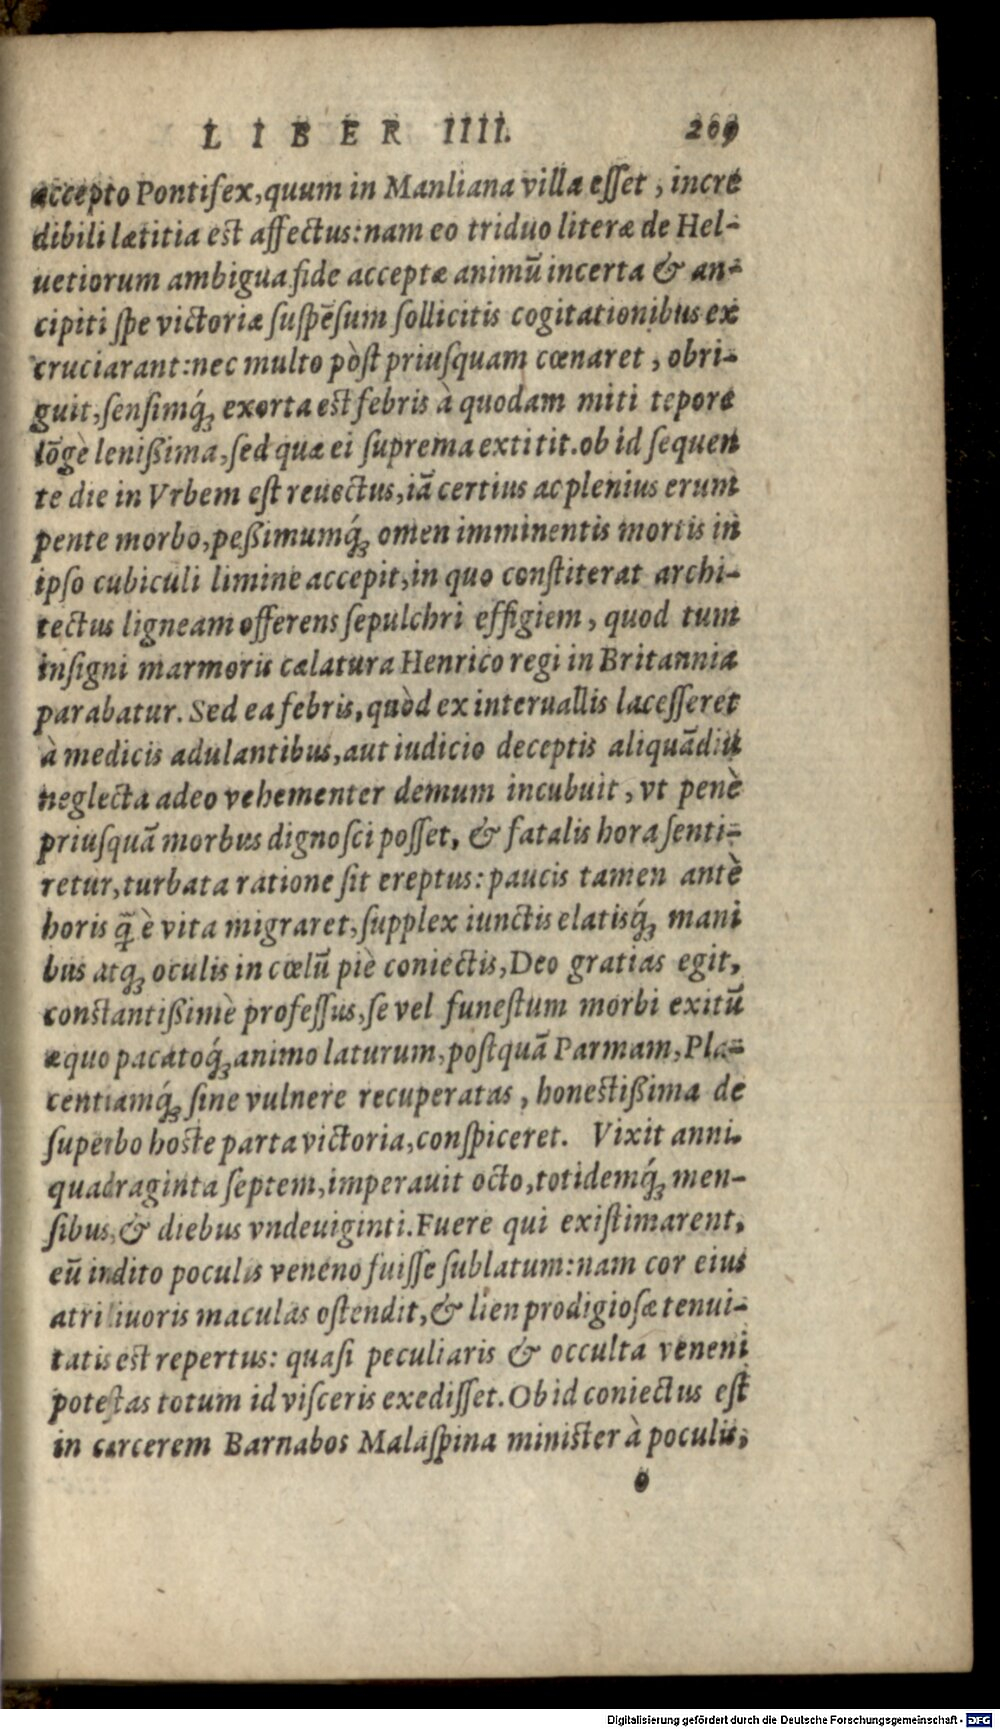 LIBER IIII. 209
accepto Pontifex, quum in Manliana villa esset, incre
dibili lætitia est affectus: nam eo triduo literæ de Hel-
uetiorum ambigua fide acceptæ animũ incerta & an-
cipiti spe victoriæ suspẽsum sollicitis cogitationibus ex
cruciarant: nec multo pòst priusquam cœnaret, obri-
guit, sensimq́; exorta est febris à quodam miti tepore
lõgè lenißima, sed quæ ei suprema extitit. ob id sequen
te die in Vrbem est reuectus, iã certius ac plenius erum
pente morbo, peßimumq́; omen imminentis mortis in
ipso cubiculi limine accepit, in quo constiterat archi-
tectus ligneam offerens sepulchri effigiem, quod tum
insigni marmoris cælatura Henrico regi in Britannia
parabatur. Sed ea febris, quòd ex interuallis lacesseret
à medicis adulantibus, aut iudicio deceptis aliquãdiu
neglecta adeo vehementer demum incubuit, vt penè
priusquã morbus dignosci posset, & fatalis hora senti-
retur, turbata ratione sit ereptus: paucis tamen antè
horis q̃ è vita migraret, supplex iunctis elatisq́; mani
bus atq; oculis in cœlũ piè coniectis, Deo gratias egit,
constantißimè professus, se vel funestum morbi exitũ
æquo pacatoq́; animo laturum, postquã Parmam, Pla-
centiamq́; sine vulnere recuperatas, honestißima de
superbo hoste parta victoria, conspiceret. Vixit annis
quadraginta septem, imperauit octo, totidemq́; men-
sibus, & diebus vndeuiginti. Fuere qui existimarent,
eũ indito poculis veneno fuisse sublatum: nam cor eius
atri liuoris maculas ostendit, & lien prodigiosæ tenui-
tatis est repertus: quasi peculiaris & occulta veneni
potestas totum id visceris exedisset. Ob id coniectus est
in carcerem Barnabos Malaspina minister à poculis,
o
Digitalisierung gefördert durch die Deutsche Forschungsgemeinschaft - DFG